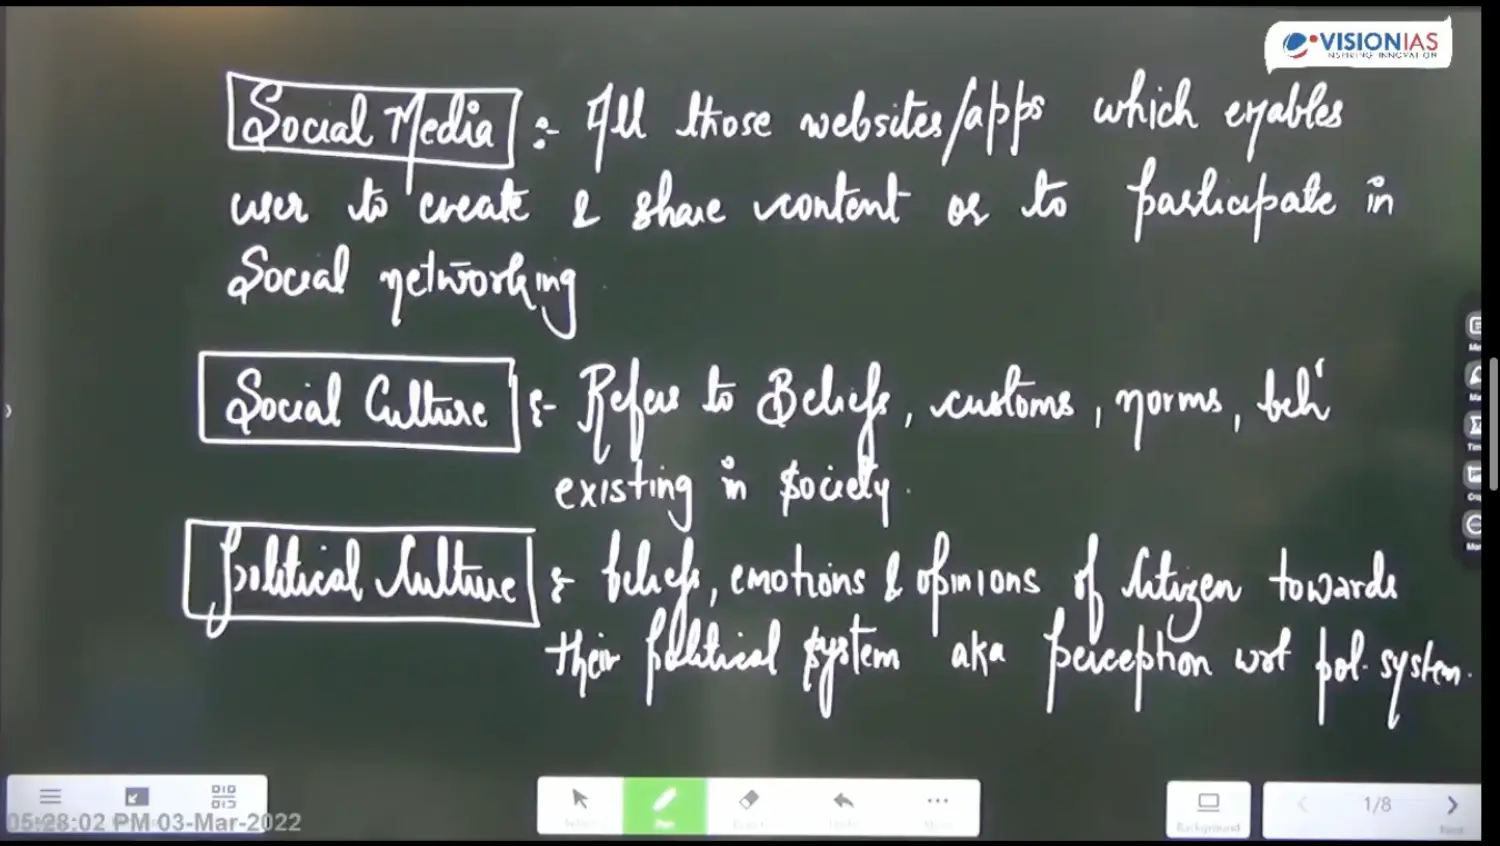 VISIONIAS
INSPIRING INNOVATION
Social Media :- All those websites/apps which enables
user to create & share content or to participate in
Social networking
Social Culture :- Refers to Beliefs, customs, norms, beh'
existing in society.
Political Culture :- beliefs, emotions & opinions of citizen towards
their political system aka perception wrt pol. system.
05:28:02 PM 03-Mar-2022
Background
1/8